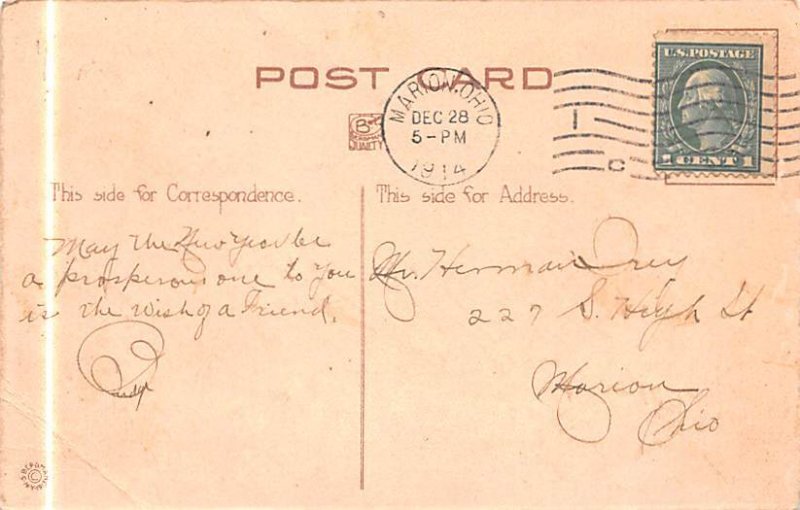 POST CARD
MARION, OHIO
DEC 28
5-PM
1914
U.S. POSTAGE
1 CENT 1
C
B
QUALITY
This side for Correspondence.
This side for Address.
May the New Year be
a prosperous one to you
is the wish of a Friend.
Mr. Herman
227 S. High St
Marion
Ohio